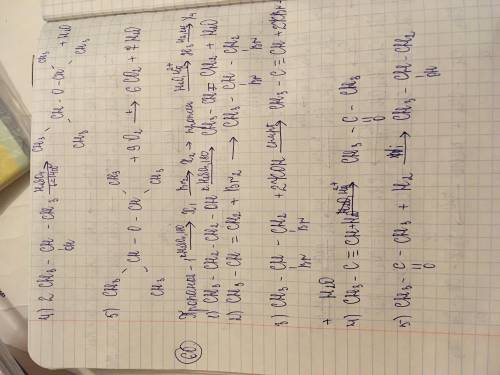 4) 2 CH3 – CH – CH3 → CH3 CH3
OH CH – O – CH + H2O
CH3 CH3
5) CH3 CH3
CH – O – CH + 9 O2 →t 6 CO2 + 7 H2O
CH3 CH3
H2SO4, t → X1 Br2→ X2 → пропен H2O, Hg2+→ X3 H2, Ni→ X4
1) CH3 – CH2 – CH2 – OH → CH3 – CH = CH2 + H2O
2) CH3 – CH = CH2 + Br2 → CH3 – CH – CH2
Br Br
3) CH3 – CH – CH2 + 2KOH спирт→ CH3 – C ≡ CH + 2KBr
Br Br
+ H2O
4) CH3 – C ≡ CH + H2O Hg2+→ CH3 – C – CH3
O
5) CH3 – C – CH3 + H2 Ni→ CH3 – CH – CH2
O OH